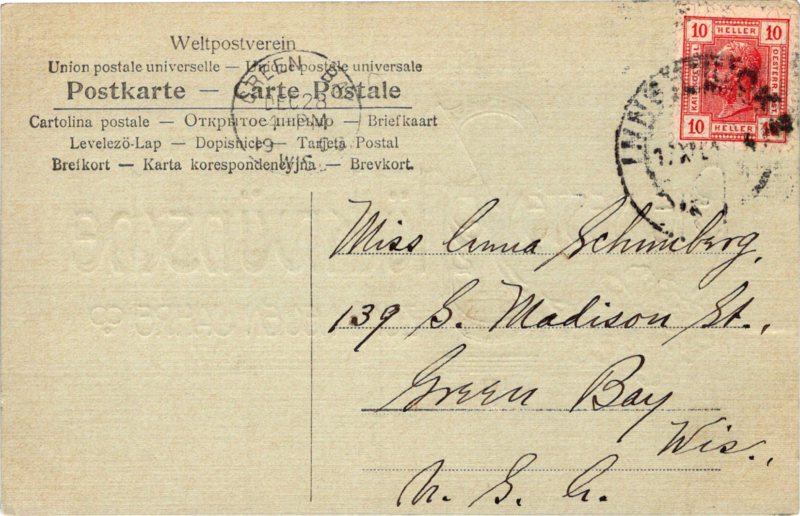 Weltpostverein
Union postale universelle — Unione postale universale
Postkarte — Carte Postale
Cartolina postale — Открытое письмо — Briefkaart
Levelező-Lap — Dopisnice — Tarjeta Postal
Brefkort — Karta korespondencyjna — Brevkort.
GREEN BAY
DEC 28
PM
WIS.
10 HELLER 10
KAIS. KÖNIGL.
OESTERR. POST
10 HELLER 10
INNSBRUCK
Miss Anna Schimberg,
139 S. Madison St.,
Green Bay
Wis.,
U. S. A.